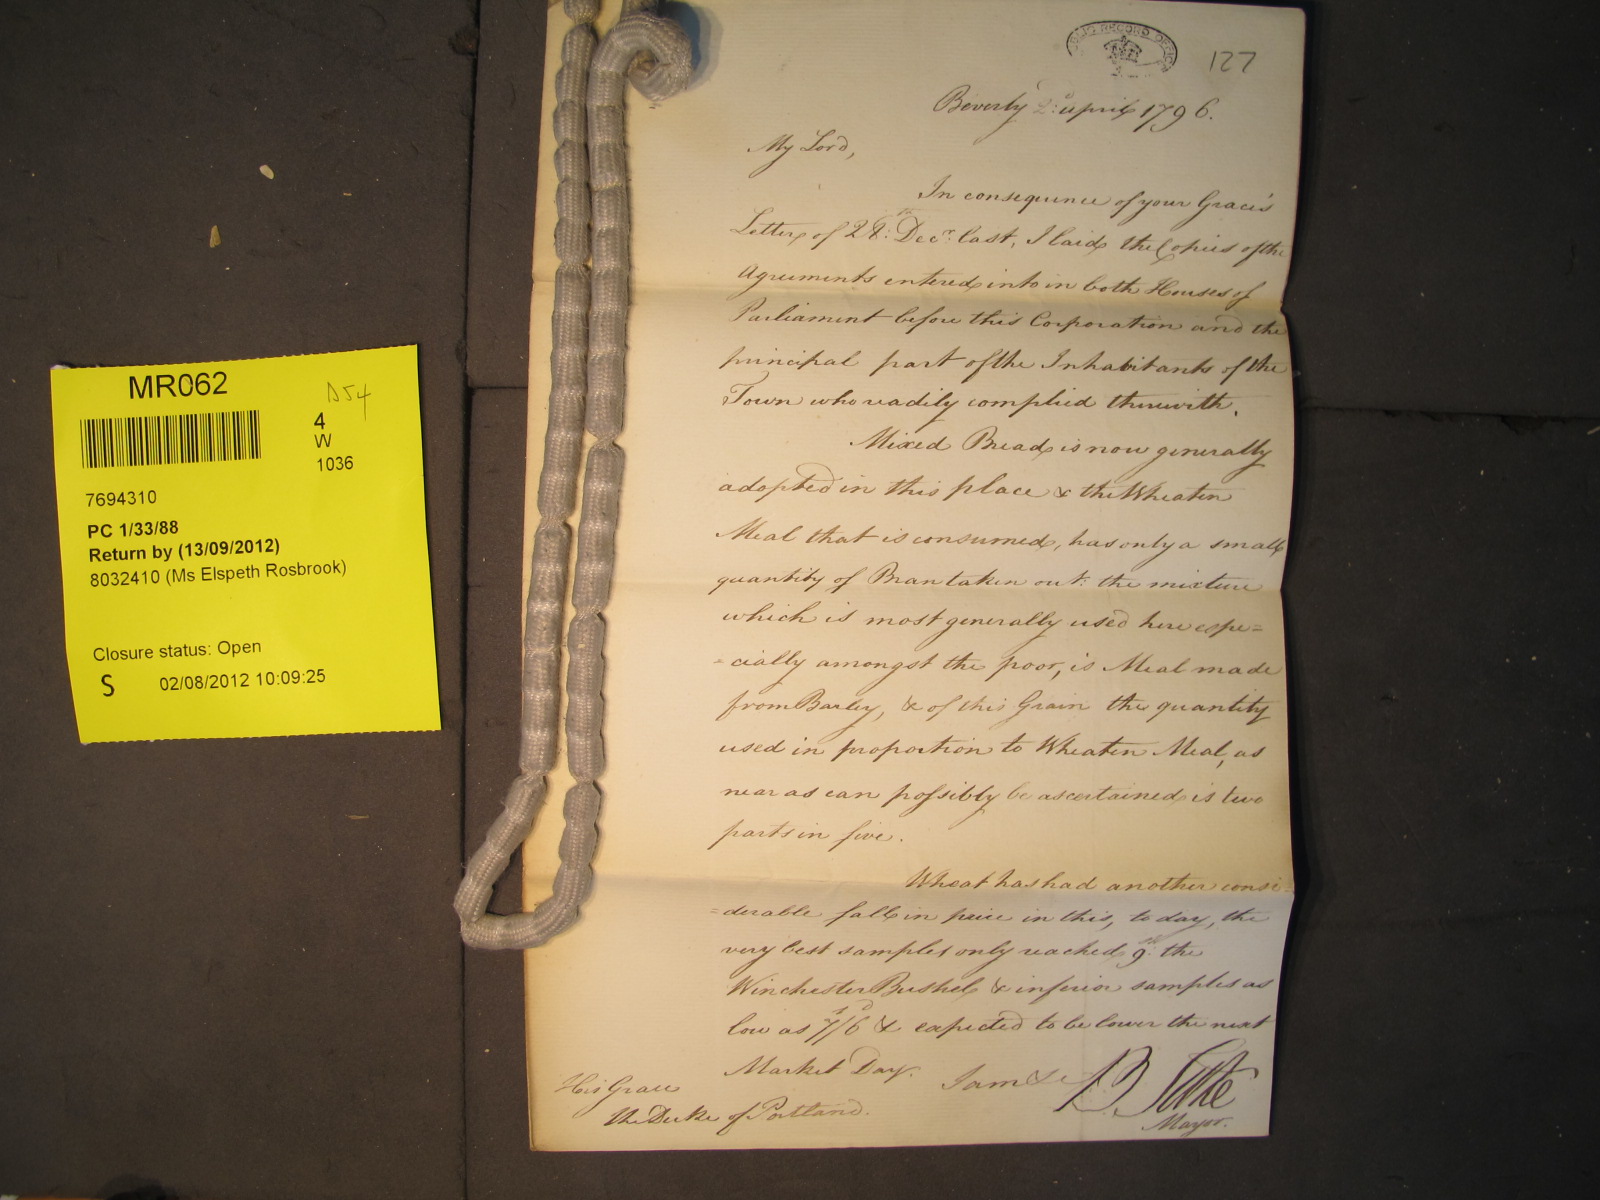 MR062
D54
4
W
1036
7694310
PC 1/33/88
Return by (13/09/2012)
8032410 (Ms Elspeth Rosbrook)
Closure status: Open
S 02/08/2012 10:09:25
PUBLIC RECORD OFFICE
127
Beverly 2d: April 1796.
My Lord,
In consequence of your Grace's
Letter of 28th: Decr: last, I laid the Copies of the
Agreements entered into in both Houses of
Parliament before this Corporation and the
principal part of the Inhabitants of the
Town who readily complied therewith.
Mixed Bread is now generally
adopted in this place & the Wheaten
Meal that is consumed, has only a small
quantity of Bran taken out: the mixture
which is most generally used here espe=
=cially amongst the poor, is Meal made
from Barley, & of this Grain the quantity
used in proportion to Wheaten Meal, as
near as can possibly be ascertained is two
parts in five.
Wheat has had another consi=
=derable fall in price in this, to day, the
very best samples only reached 9s: the
Winchester Bushel & inferior samples as
low as 7s/6d & expected to be lower the next
Market Day. I am &c
Mayor.
His Grace
the Duke of Portland.